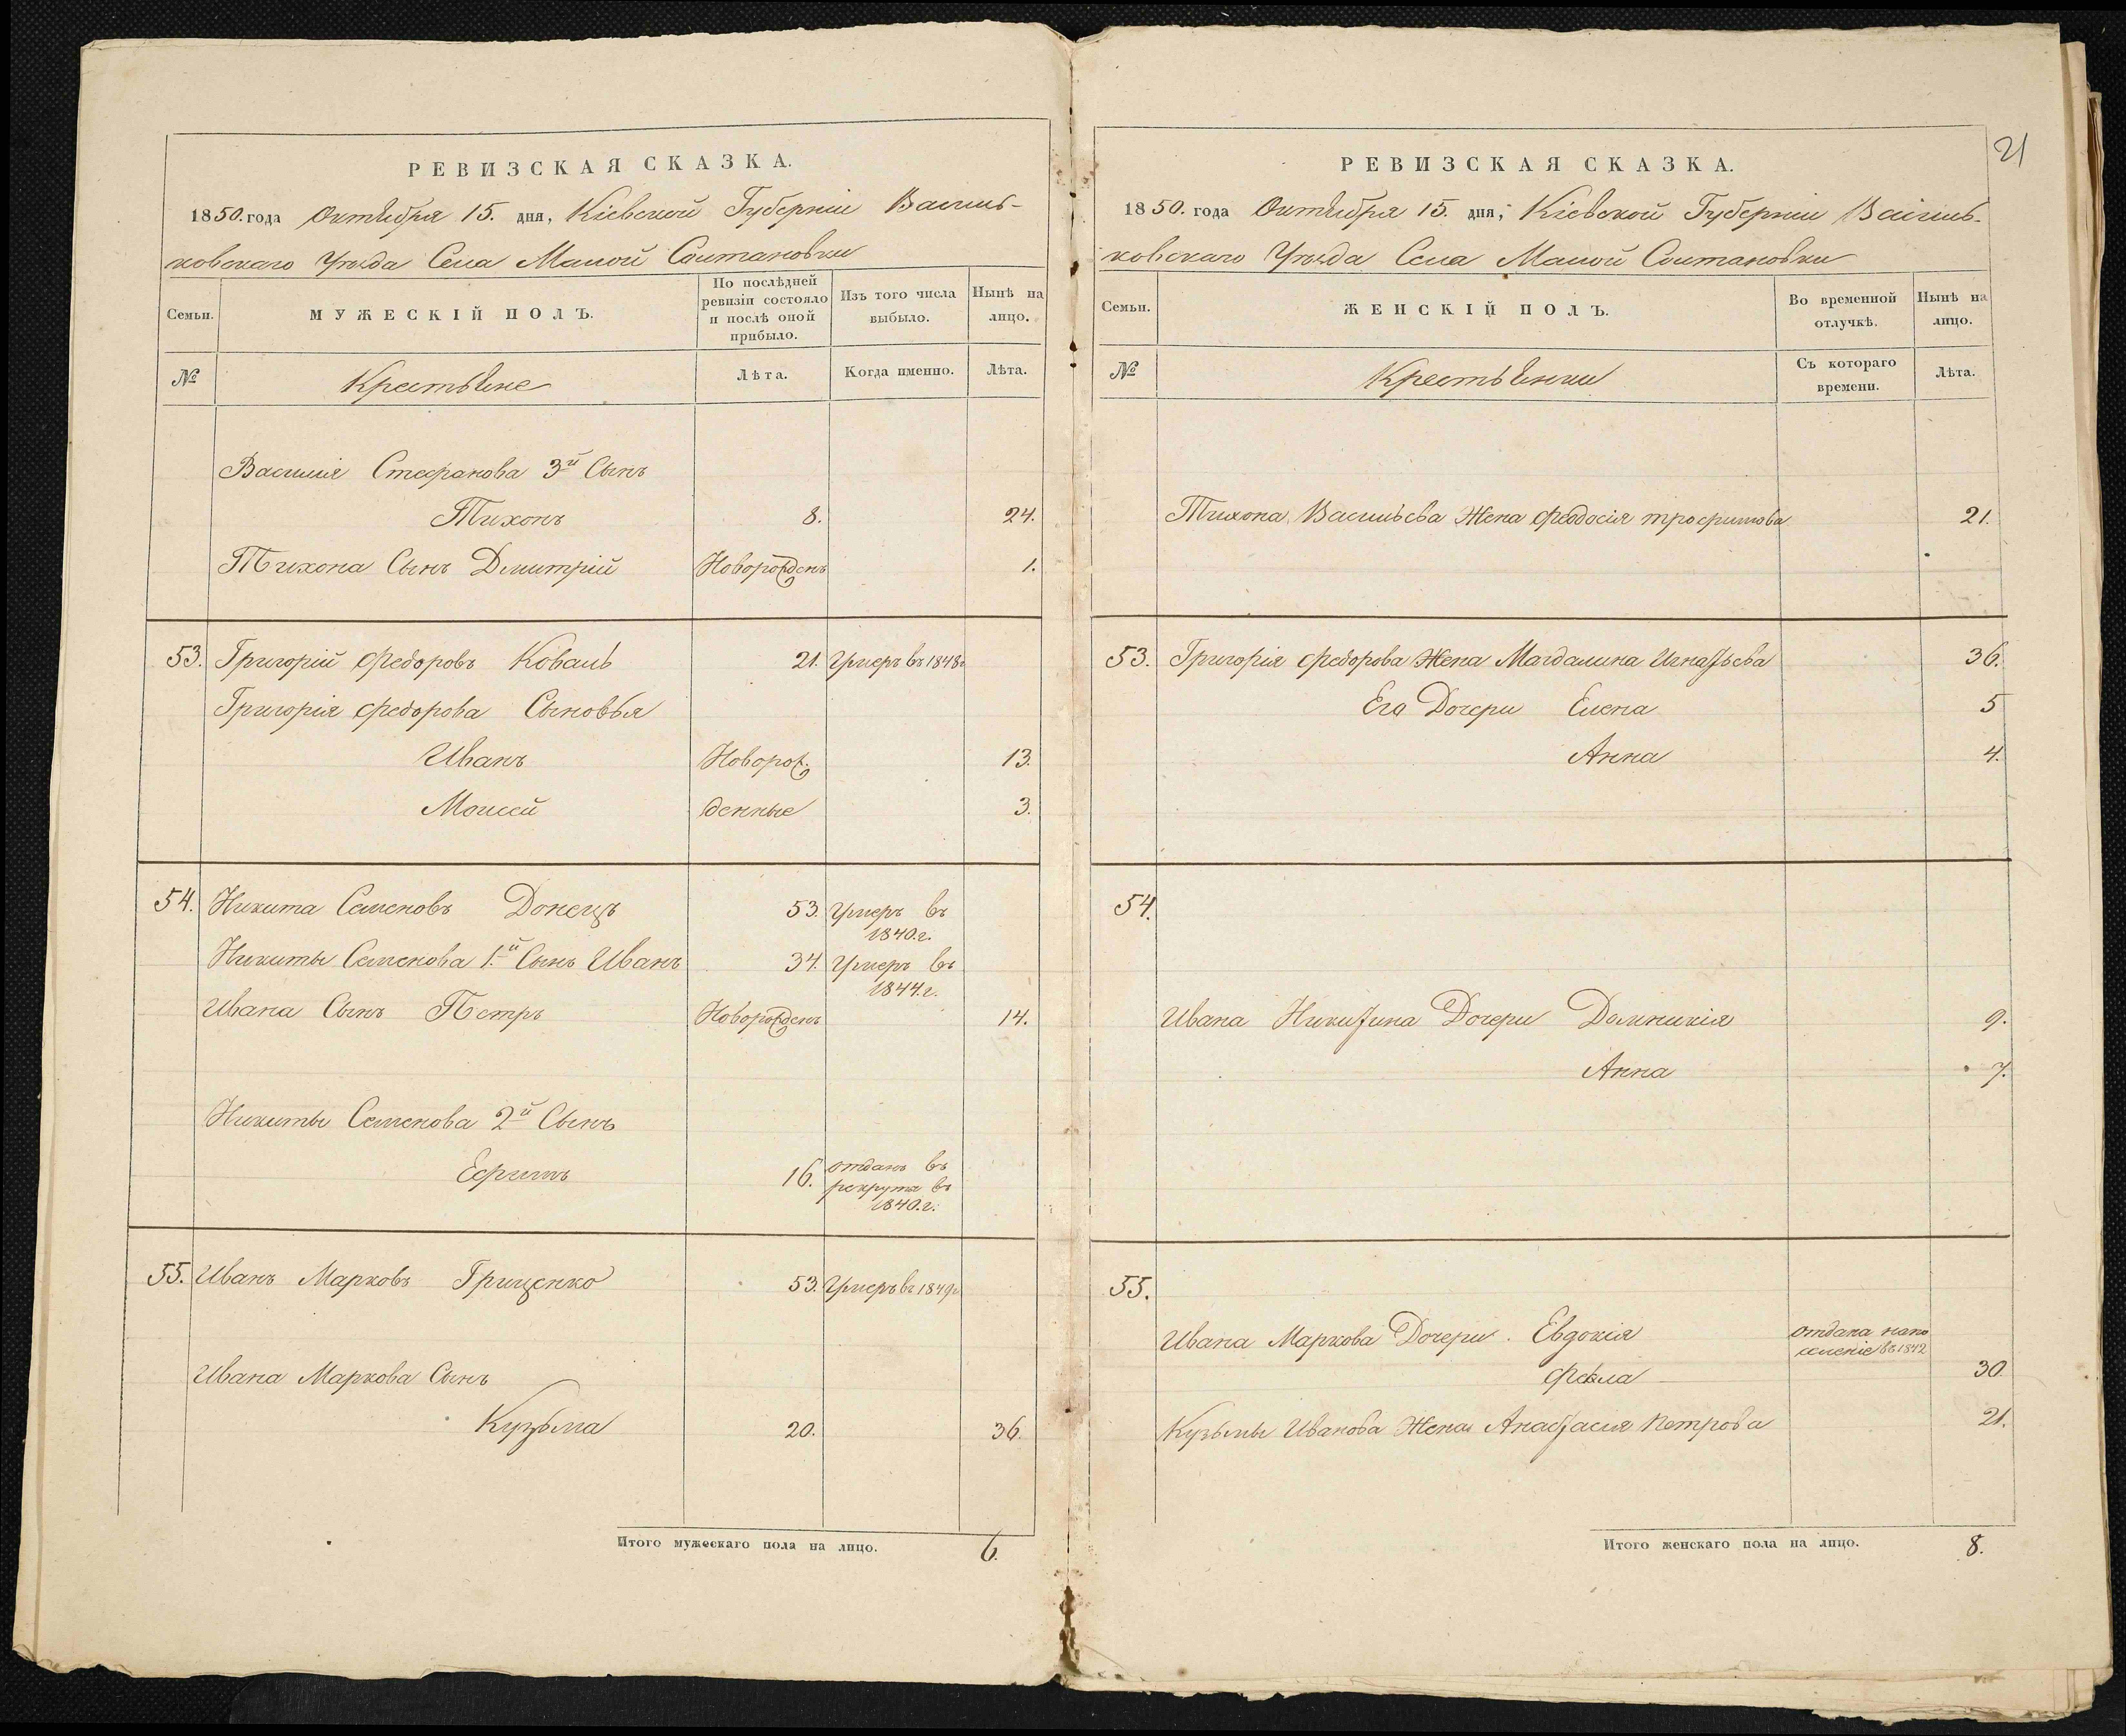 РЕВИЗСКАЯ СКАЗКА.
1850. года Октября 15. дня, Кіевской Губерніи Василь-
ковскаго Уѣзда Села Малой Солтановки
Семьи.
МУЖЕСКІЙ ПОЛЪ.
По послѣдней ревизіи состояло и послѣ оной прибыло.
Изъ того числа выбыло.
Нынѣ на лицо.
№
Крестьяне
Лѣта.
Когда именно.
Лѣта.
Василія Стефанова 3й Сынъ
Тихонъ 8. 24.
Тихона Сынъ Дмитрій Новорожденъ 1.
53. Григорій Федоровъ Коваль 21. Умеръ въ 1848г
Григорія Федорова Сыновья
Иванъ Новорож- 13.
Моисей денные 3.
54. Никита Семеновъ Донецъ 53. Умеръ въ
1840.г.
Никиты Семенова 1.й Сынъ Иванъ 34. Умеръ въ
1844.г.
Ивана Сынъ Петръ Новорожденъ 14.
Никиты Семенова 2й Сынъ
Ефимъ 16. отданъ въ
рекруты въ
1840.г.
55. Иванъ Марковъ Грищенко 53. Умеръ въ 1849г
Ивана Маркова Сынъ
Кузьма 20. 36.
Итого мужескаго пола на лицо. 6.
21
РЕВИЗСКАЯ СКАЗКА.
1850. года Октября 15. дня, Кіевской Губерніи Василь-
ковскаго Уѣзда Села Малой Солтановки
Семьи.
ЖЕНСКІЙ ПОЛЪ.
Во временной отлучкѣ.
Нынѣ на лицо.
№
Крестьянки
Съ котораго времени.
Лѣта.
Тихона Васильева Жена Феодосія трофимова 21.
53. Григорія Федорова Жена Магдалина Игнатьева 36.
Его Дочери Елена 5
Анна 4.
54.
Ивана Никитина Дочери Домникія 9.
Анна 7.
55.
Ивана Маркова Дочери Евдокія отдана напо
селеніе въ 1842
Фекла 30.
Кузьмы Иванова Жена Анастасія Петрова 21.
Итого женскаго пола на лицо. 8.